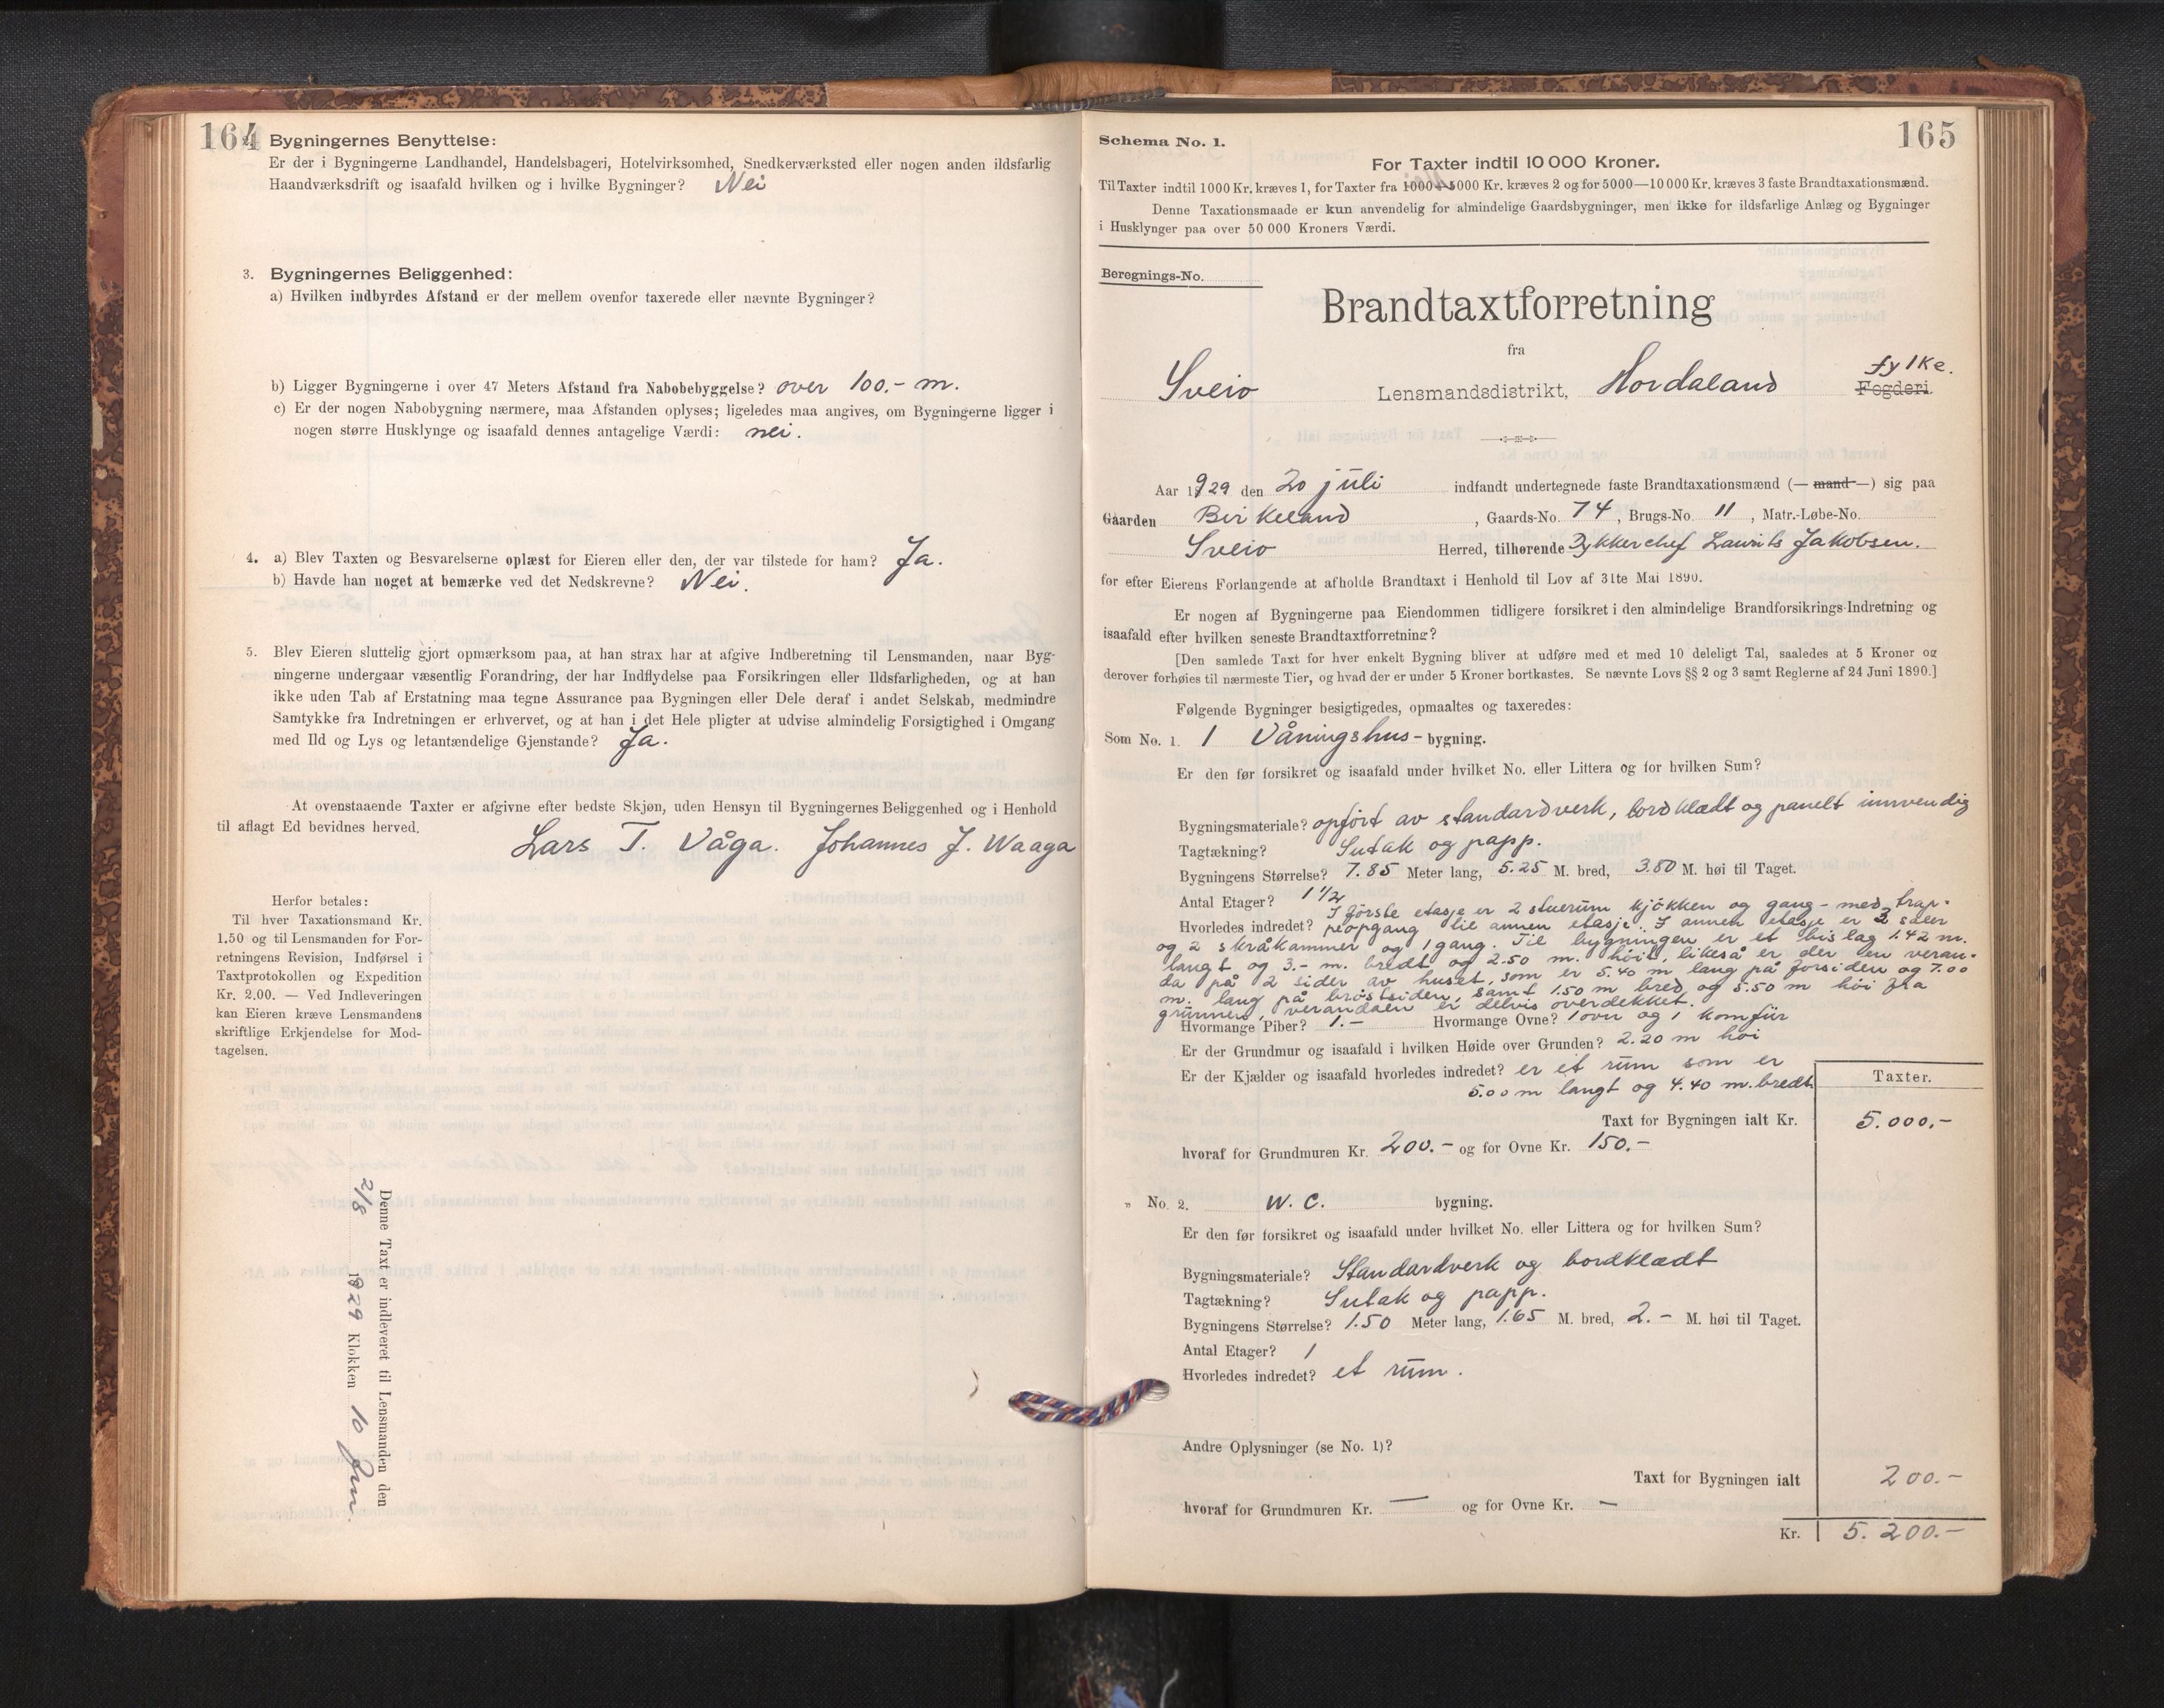 164
2. Bygningernes Benyttelse:
Er der i Bygningerne Landhandel, Handelsbageri, Hotelvirksomhed, Snedkerværksted eller nogen anden ildsfarlig
Haandværksdrift og isaafald hvilken og i hvilke Bygninger? Nei
3. Bygningernes Beliggenhed:
a) Hvilken indbyrdes Afstand er der mellem ovenfor taxerede eller nævnte Bygninger?
b) Ligger Bygningerne i over 47 Meters Afstand fra Nabobebyggelse? over 100.- m.
c) Er der nogen Nabobygning nærmere, maa Afstanden oplyses; ligeledes maa angives, om Bygningerne ligger i
nogen større Husklynge og isaafald dennes antagelige Værdi: nei.
4. a) Blev Taxten og Besvarelserne oplæst for Eieren eller den, der var tilstede for ham? Ja.
b) Havde han noget at bemærke ved det Nedskrevne? Nei.
5. Blev Eieren sluttelig gjort opmærksom paa, at han strax har at afgive Indberetning til Lensmanden, naar Byg-
ningerne undergaar væsentlig Forandring, der har Indflydelse paa Forsikringen eller Ildsfarligheden, og at han
ikke uden Tab af Erstatning maa tegne Assurance paa Bygningen eller Dele deraf i andet Selskab, medmindre
Samtykke fra Indretningen er erhvervet, og at han i det Hele pligter at udvise almindelig Forsigtighed i Omgang
med Ild og Lys og letantændelige Gjenstande? Ja.
At ovenstaaende Taxter er afgivne efter bedste Skjøn, uden Hensyn til Bygningernes Beliggenhed og i Henhold
til aflagt Ed bevidnes herved.
Lars T. Våga. Johannes J. Waaga
Herfor betales:
Til hver Taxationsmand Kr.
1.50 og til Lensmanden for For-
retningens Revision, Indførsel i
Taxtprotokollen og Expedition
Kr. 2.00. — Ved Indleveringen
kan Eieren kræve Lensmandens
skriftlige Erkjendelse for Mod-
tagelsen.
Denne Taxt er indleveret til Lensmanden den
2/8 1929 Klokken 10 fm.
165
Schema No. 1.
For Taxter indtil 10 000 Kroner.
Til Taxter indtil 1000 Kr. kræves 1, for Taxter fra 1000—5000 Kr. kræves 2 og for 5000—10 000 Kr. kræves 3 faste Brandtaxationsmænd.
Denne Taxationsmaade er kun anvendelig for almindelige Gaardsbygninger, men ikke for ildsfarlige Anlæg og Bygninger
i Husklynger paa over 50 000 Kroners Værdi.
Beregnings-No.
Brandtaxtforretning
fra
fylke.
Sveio Lensmandsdistrikt, Hordaland Fogderi.
Aar 1929 den 20 juli indfandt undertegnede faste Brandtaxationsmænd (— mand —) sig paa
Gaarden Birkeland, Gaards-No. 74, Brugs-No. 11, Matr.-Løbe-No.
Sveio Herred, tilhørende Dykkerchef Laurits Jakobsen.
for efter Eierens Forlangende at afholde Brandtaxt i Henhold til Lov af 31te Mai 1890.
Er nogen af Bygningerne paa Eiendommen tidligere forsikret i den almindelige Brandforsikrings-Indretning og
isaafald efter hvilken seneste Brandtaxtforretning?
[Den samlede Taxt for hver enkelt Bygning bliver at udføre med et med 10 deleligt Tal, saaledes at 5 Kroner og
derover forhøies til nærmeste Tier, og hvad der er under 5 Kroner bortkastes. Se nævnte Lovs §§ 2 og 3 samt Reglerne af 24 Juni 1890.]
Følgende Bygninger besigtigedes, opmaaltes og taxeredes:
Som No. 1. 1 Våningshus - bygning.
Er den før forsikret og isaafald under hvilket No. eller Littera og for hvilken Sum?
Bygningsmateriale? opført av standardverk, bordklædt og panelt innvendig
Tagtækning? Sutak og papp.
Bygningens Størrelse? 7.85 Meter lang, 5.25 M. bred, 3.80 M. høi til Taget.
Antal Etager? 1 1/2
Hvorledes indredet? I første etasje er 2 stuerum kjøkken og gang - med trap-
peopgang til annen etasje. I annen etasje er 2 saler
og 2 skråkammer og 1 gang. Til bygningen er et bislag 1.42 m.
langt og 3.- m. bredt og 2.50 m. høit, likeså er der en veran-
da på 2 sider av huset, som er 5.40 m lang på forsiden og 7.00
m. lang på brøstsiden, samt 1.50 m bred og 5.50 m høi fra
grunnen, verandaen er delvis overdekket.
Hvormange Piber? 1.- Hvormange Ovne? 1 ovn og 1 komfür
Er der Grundmur og isaafald i hvilken Høide over Grunden? 2.20 m høi
Er der Kjælder og isaafald hvorledes indredet? er et rum som er
5.00 m langt og 4.40 m. bredt
Taxter.
Taxt for Bygningen ialt Kr. 5.000.-
hvoraf for Grundmuren Kr. 200.- og for Ovne Kr. 150.-
„ No. 2. W. C. bygning.
Er den før forsikret og isaafald under hvilket No. eller Littera og for hvilken Sum?
Bygningsmateriale? Standardverk og bordklædt
Tagtækning? Sutak og papp.
Bygningens Størrelse? 1.50 Meter lang, 1.65 M. bred, 2.- M. høi til Taget.
Antal Etager? 1
Hvorledes indredet? et rum.
Andre Oplysninger (se No. 1)?
Taxt for Bygningen ialt 200.-
hvoraf for Grundmuren Kr. — og for Ovne Kr. —
Kr. 5.200.-